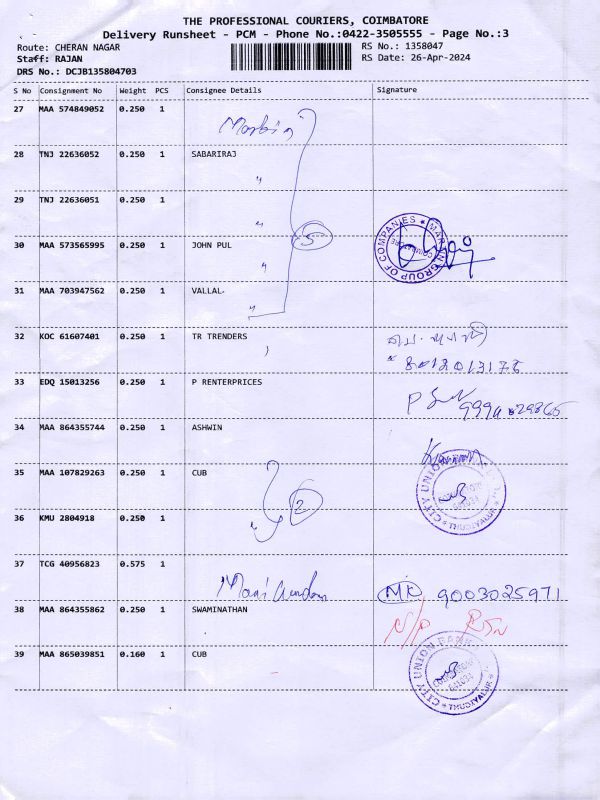 THE PROFESSIONAL COURIERS, COIMBATORE
Delivery Runsheet - PCM - Phone No.:0422-3505555 - Page No.:3
Route: CHERAN NAGAR RS No.: 1358047
Staff: RAJAN RS Date: 26-Apr-2024
DRS No.: DCJB135804703
S No Consignment No Weight PCS Consignee Details Signature
27 MAA 574849052 0.250 1
28 TNJ 22636052 0.250 1 SABARIRAJ
"
29 TNJ 22636051 0.250 1
"
5
30 MAA 573565995 0.250 1 JOHN PUL
MARTIN GROUP OF COMPANIES * COIMBATORE
"
31 MAA 703947562 0.250 1 VALLAL
"
32 KOC 61607401 0.250 1 TR TRENDERS
33 EDQ 15013256 0.250 1 P RENTERPRICES
34 MAA 864355744 0.250 1 ASHWIN
35 MAA 107829263 0.250 1 CUB
2
CITY UNION BANK * THUDIYALUR * 641034
36 KMU 2804918 0.250 1
37 TCG 40956823 0.575 1
MK 9003025971
38 MAA 864355862 0.250 1 SWAMINATHAN
N/P RTN
39 MAA 865039851 0.160 1 CUB
CITY UNION BANK * THUDIYALUR * 641034